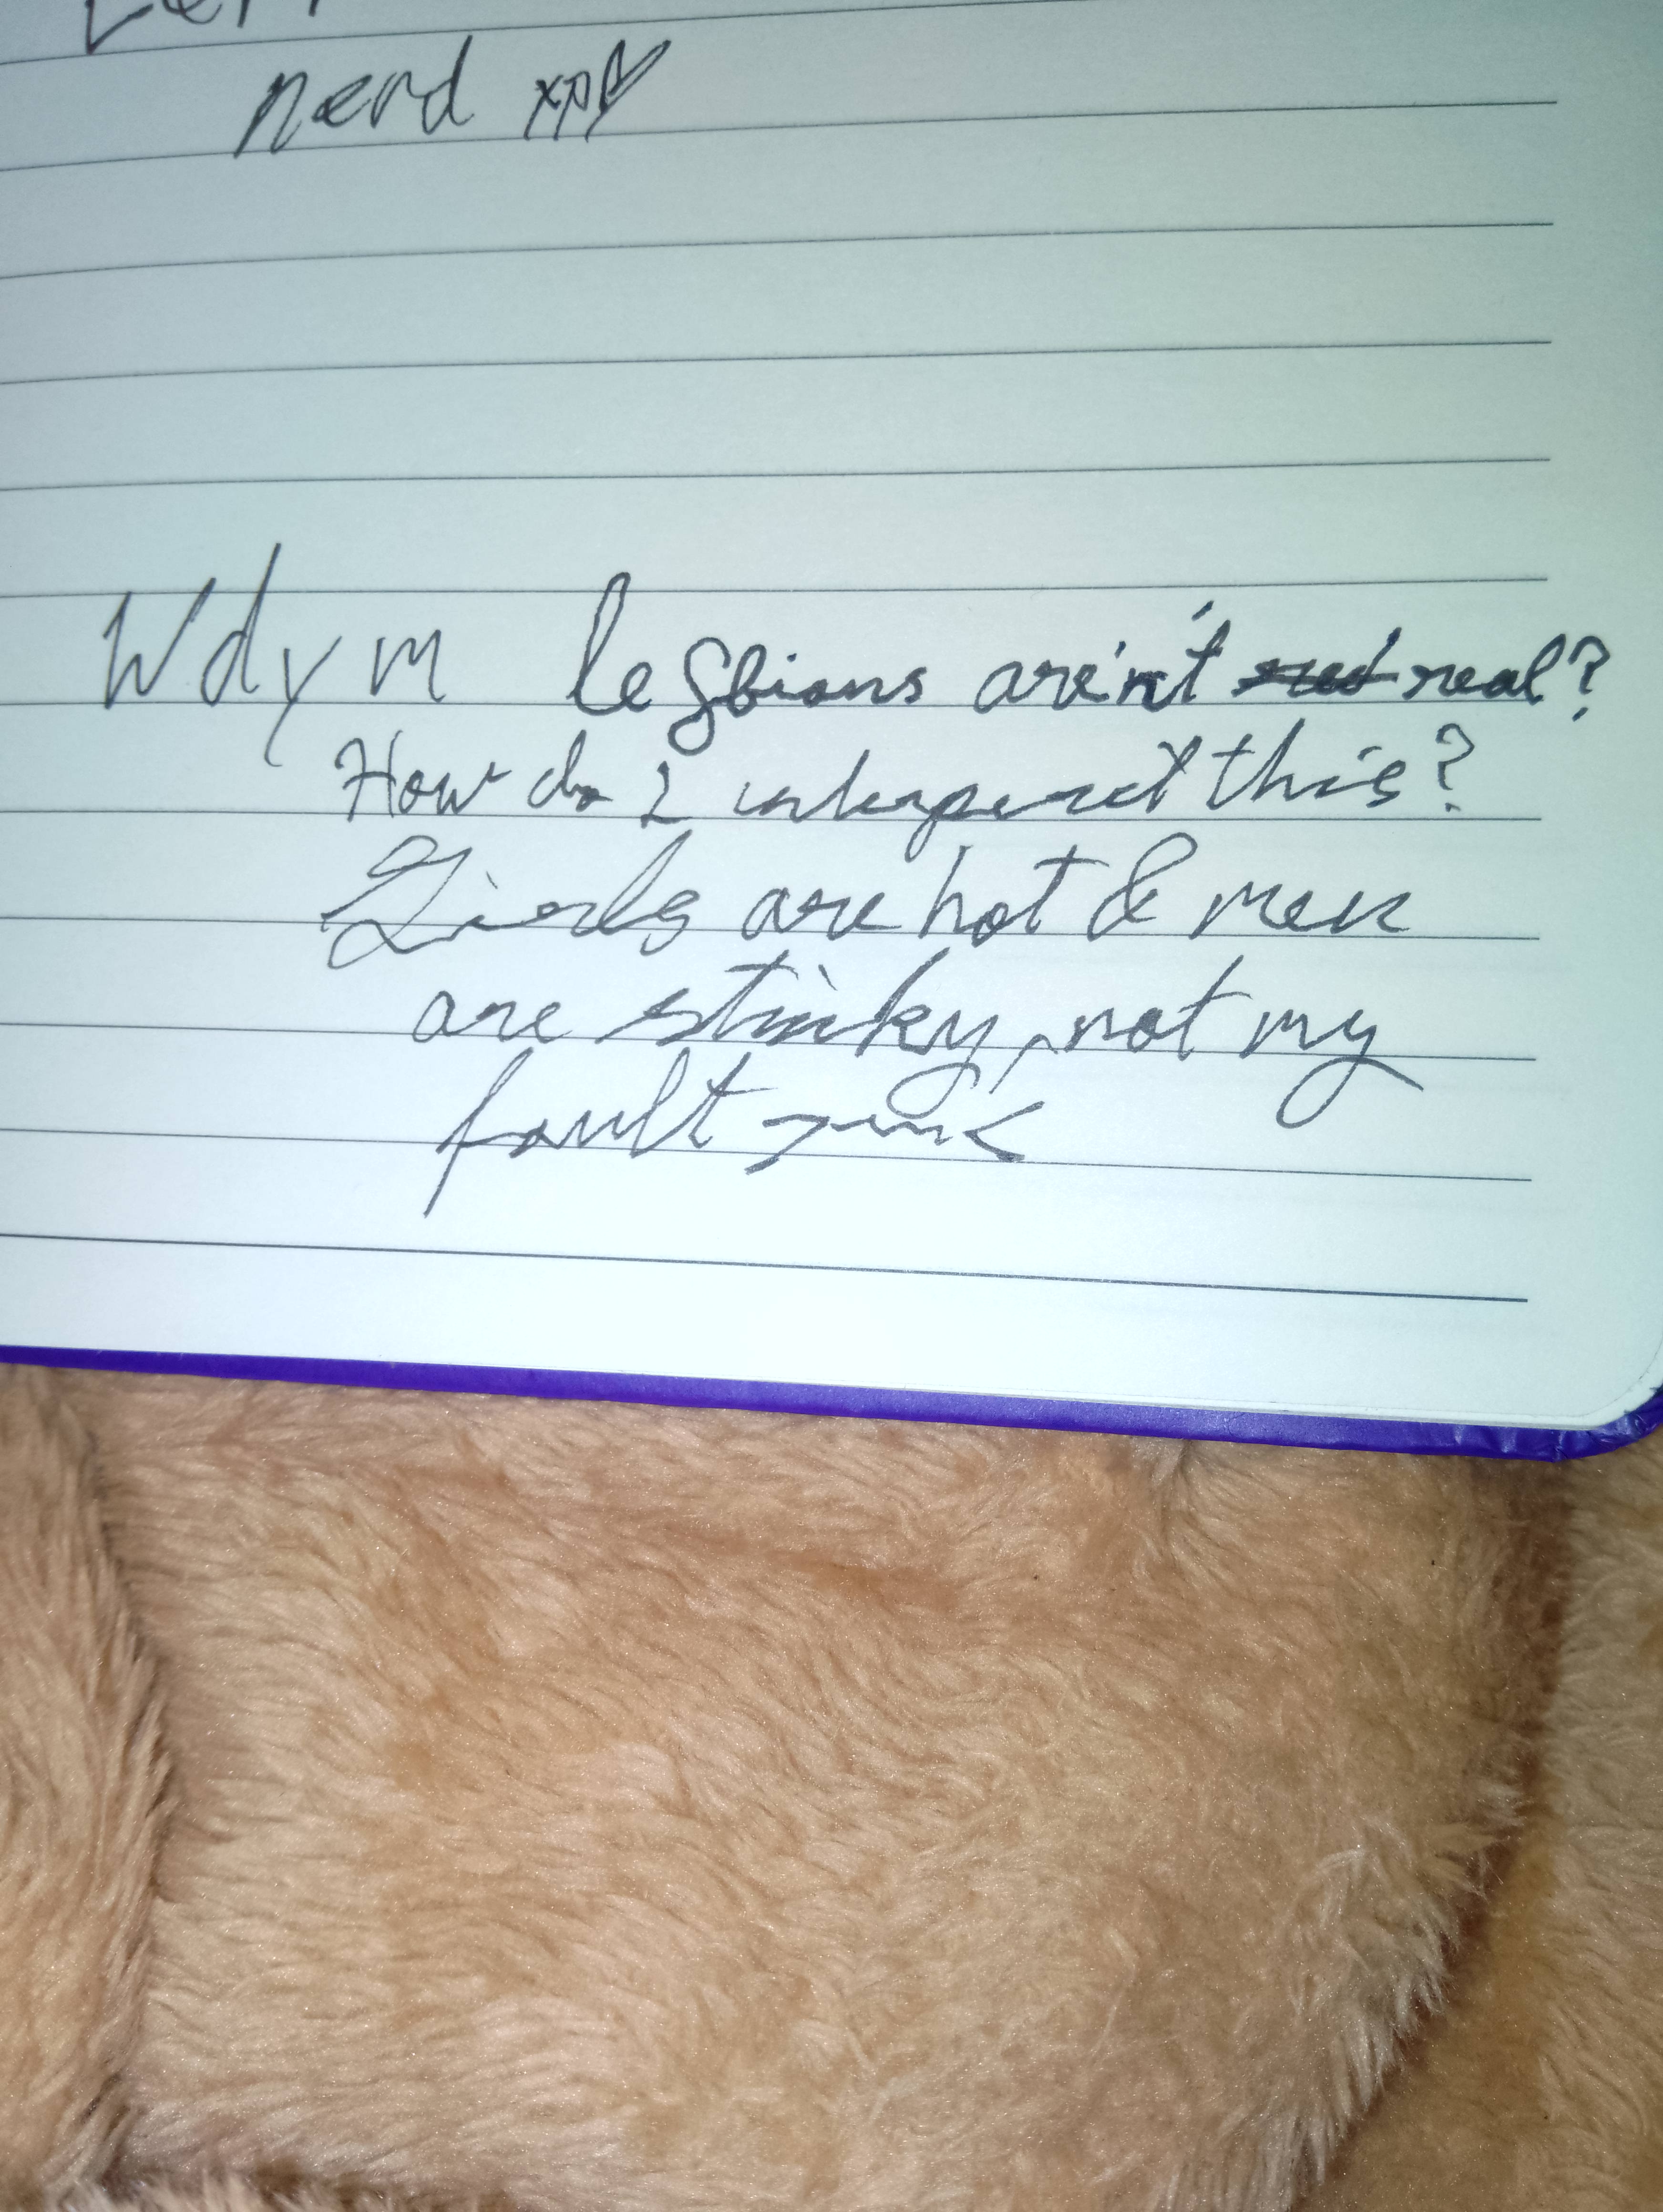 nerd xp
Wdym lesbians aren't real?
How do I interperet this?
Girls are hot & men
are stinky, not my
fault